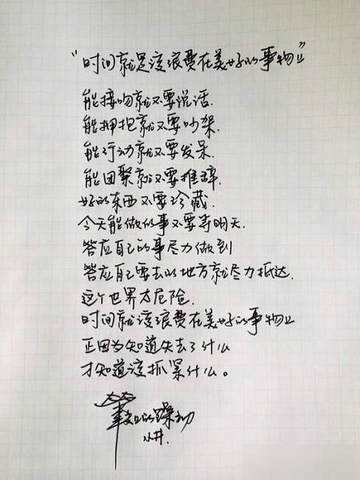 “时间就是该浪费在美好的事物上”
能接吻就不要说话.
能拥抱就不要吵架.
能行动就不要发呆.
能团聚就不要推辞.
好的东西不要珍藏.
今天能做的事不要弄明天.
答应自己的事尽力做到
答应自己要去的地方就尽力抵达.
这个世界太危险.
时间就该浪费在美好的事物上
正因为知道失去了什么
才知道该抓紧什么。